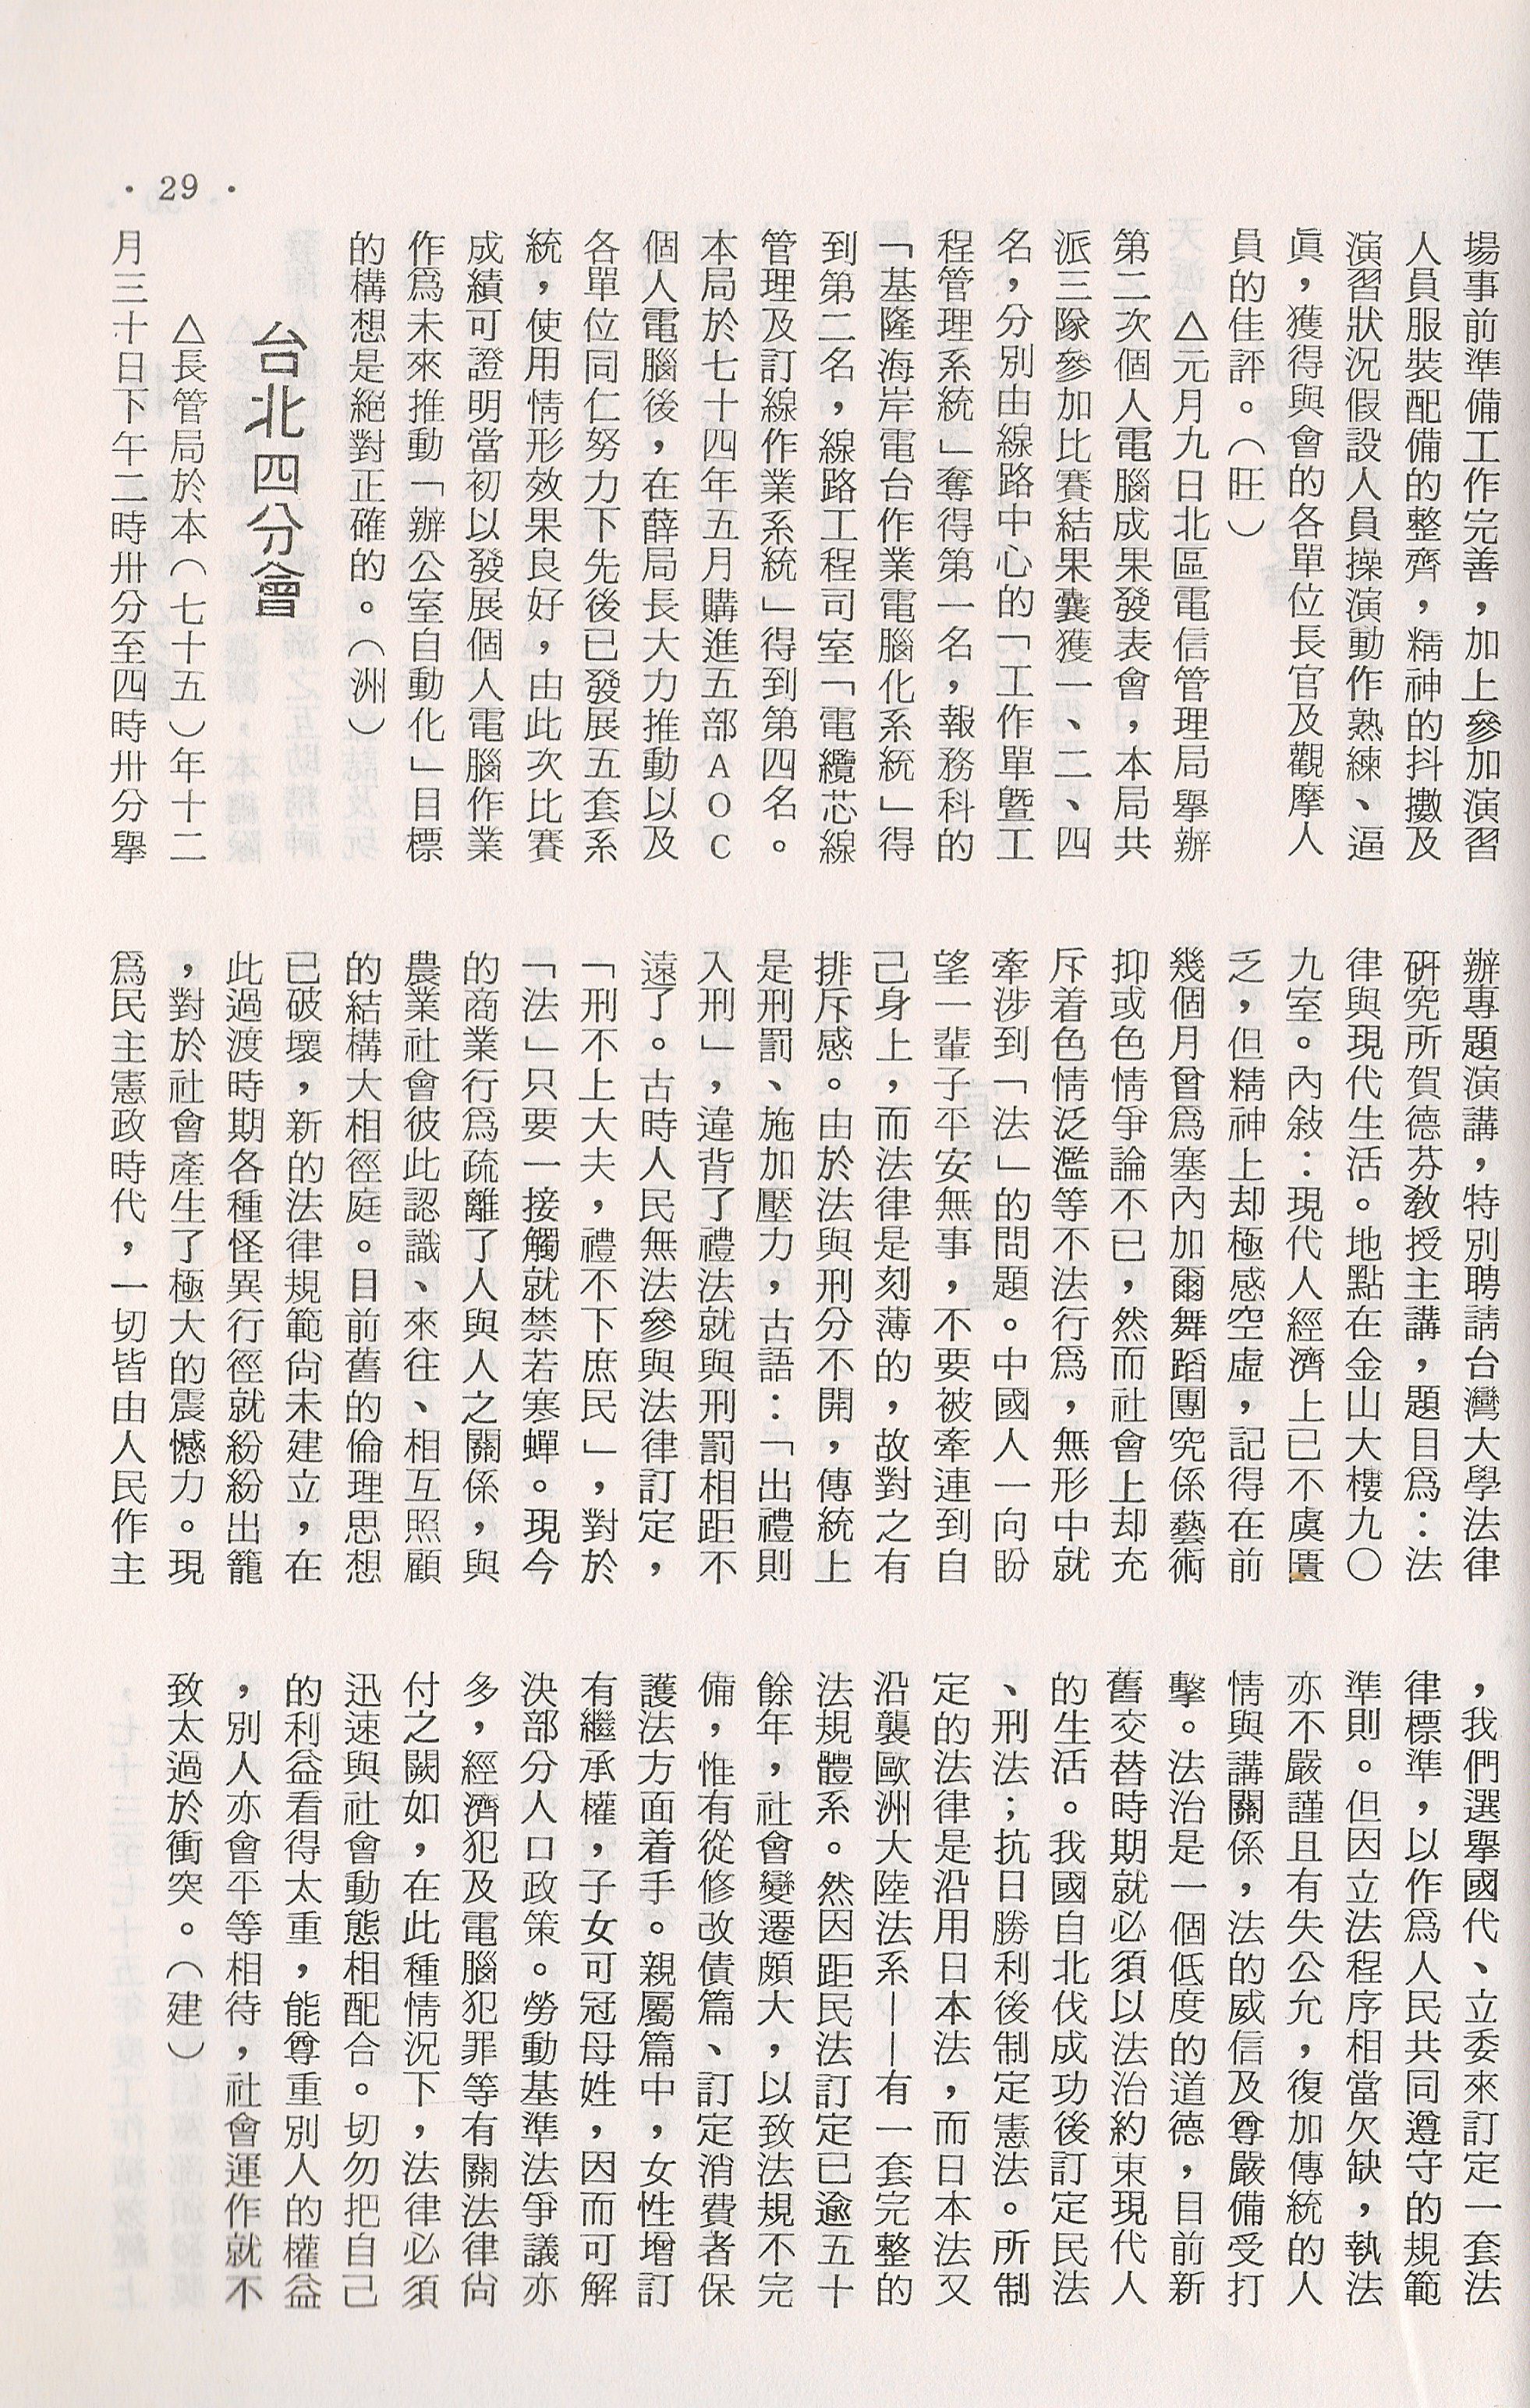 場事前準備工作完善，加上參加演習
人員服裝配備的整齊，精神的抖擻及
演習狀況假設人員操演動作熟練、逼
眞，獲得與會的各單位長官及觀摩人
員的佳評。（旺）
△元月九日北區電信管理局舉辦
第二次個人電腦成果發表會，本局共
派三隊參加比賽結果囊獲一、二、四
名，分別由線路中心的「工作單暨工
程管理系統」奪得第一名，報務科的
「基隆海岸電台作業電腦化系統」得
到第二名，線路工程司室「電纜芯線
管理及訂線作業系統」得到第四名。
本局於七十四年五月購進五部ＡＯＣ
個人電腦後，在薛局長大力推動以及
各單位同仁努力下先後已發展五套系
統，使用情形效果良好，由此次比賽
成績可證明當初以發展個人電腦作業
作爲未來推動「辦公室自動化」目標
的構想是絕對正確的。（洲）
台北四分會
△長管局於本（七十五）年十二
月三十日下午二時卅分至四時卅分舉
辦專題演講，特別聘請台灣大學法律
硏究所賀德芬敎授主講，題目爲：法
律與現代生活。地點在金山大樓九〇
九室。內敍：現代人經濟上已不虞匱
乏，但精神上却極感空虛，記得在前
幾個月曾爲塞內加爾舞蹈團究係藝術
抑或色情爭論不已，然而社會上却充
斥着色情泛濫等不法行爲，無形中就
牽涉到「法」的問題。中國人一向盼
望一輩子平安無事，不要被牽連到自
己身上，而法律是刻薄的，故對之有
排斥感。由於法與刑分不開，傳統上
是刑罰、施加壓力，古語：「出禮則
入刑」，違背了禮法就與刑罰相距不
遠了。古時人民無法參與法律訂定，
「刑不上大夫，禮不下庶民」，對於
「法」只要一接觸就禁若寒蟬。現今
的商業行爲疏離了人與人之關係，與
農業社會彼此認識、來往、相互照顧
的結構大相徑庭。目前舊的倫理思想
已破壞，新的法律規範尙未建立，在
此過渡時期各種怪異行徑就紛紛出籠
，對於社會產生了極大的震憾力。現
爲民主憲政時代，一切皆由人民作主
，我們選舉國代、立委來訂定一套法
律標準，以作爲人民共同遵守的規範
準則。但因立法程序相當欠缺，執法
亦不嚴謹且有失公允，復加傳統的人
情與講關係，法的威信及尊嚴備受打
擊。法治是一個低度的道德，目前新
舊交替時期就必須以法治約束現代人
的生活。我國自北伐成功後訂定民法
、刑法；抗日勝利後制定憲法。所制
定的法律是沿用日本法，而日本法又
沿襲歐洲大陸法系——有一套完整的
法規體系。然因距民法訂定已逾五十
餘年，社會變遷頗大，以致法規不完
備，惟有從修改債篇、訂定消費者保
護法方面着手。親屬篇中，女性增訂
有繼承權，子女可冠母姓，因而可解
決部分人口政策。勞動基準法爭議亦
多，經濟犯及電腦犯罪等有關法律尙
付之闕如，在此種情況下，法律必須
迅速與社會動態相配合。切勿把自己
的利益看得太重，能尊重別人的權益
，別人亦會平等相待，社會運作就不
致太過於衝突。（建）
· 29 ·